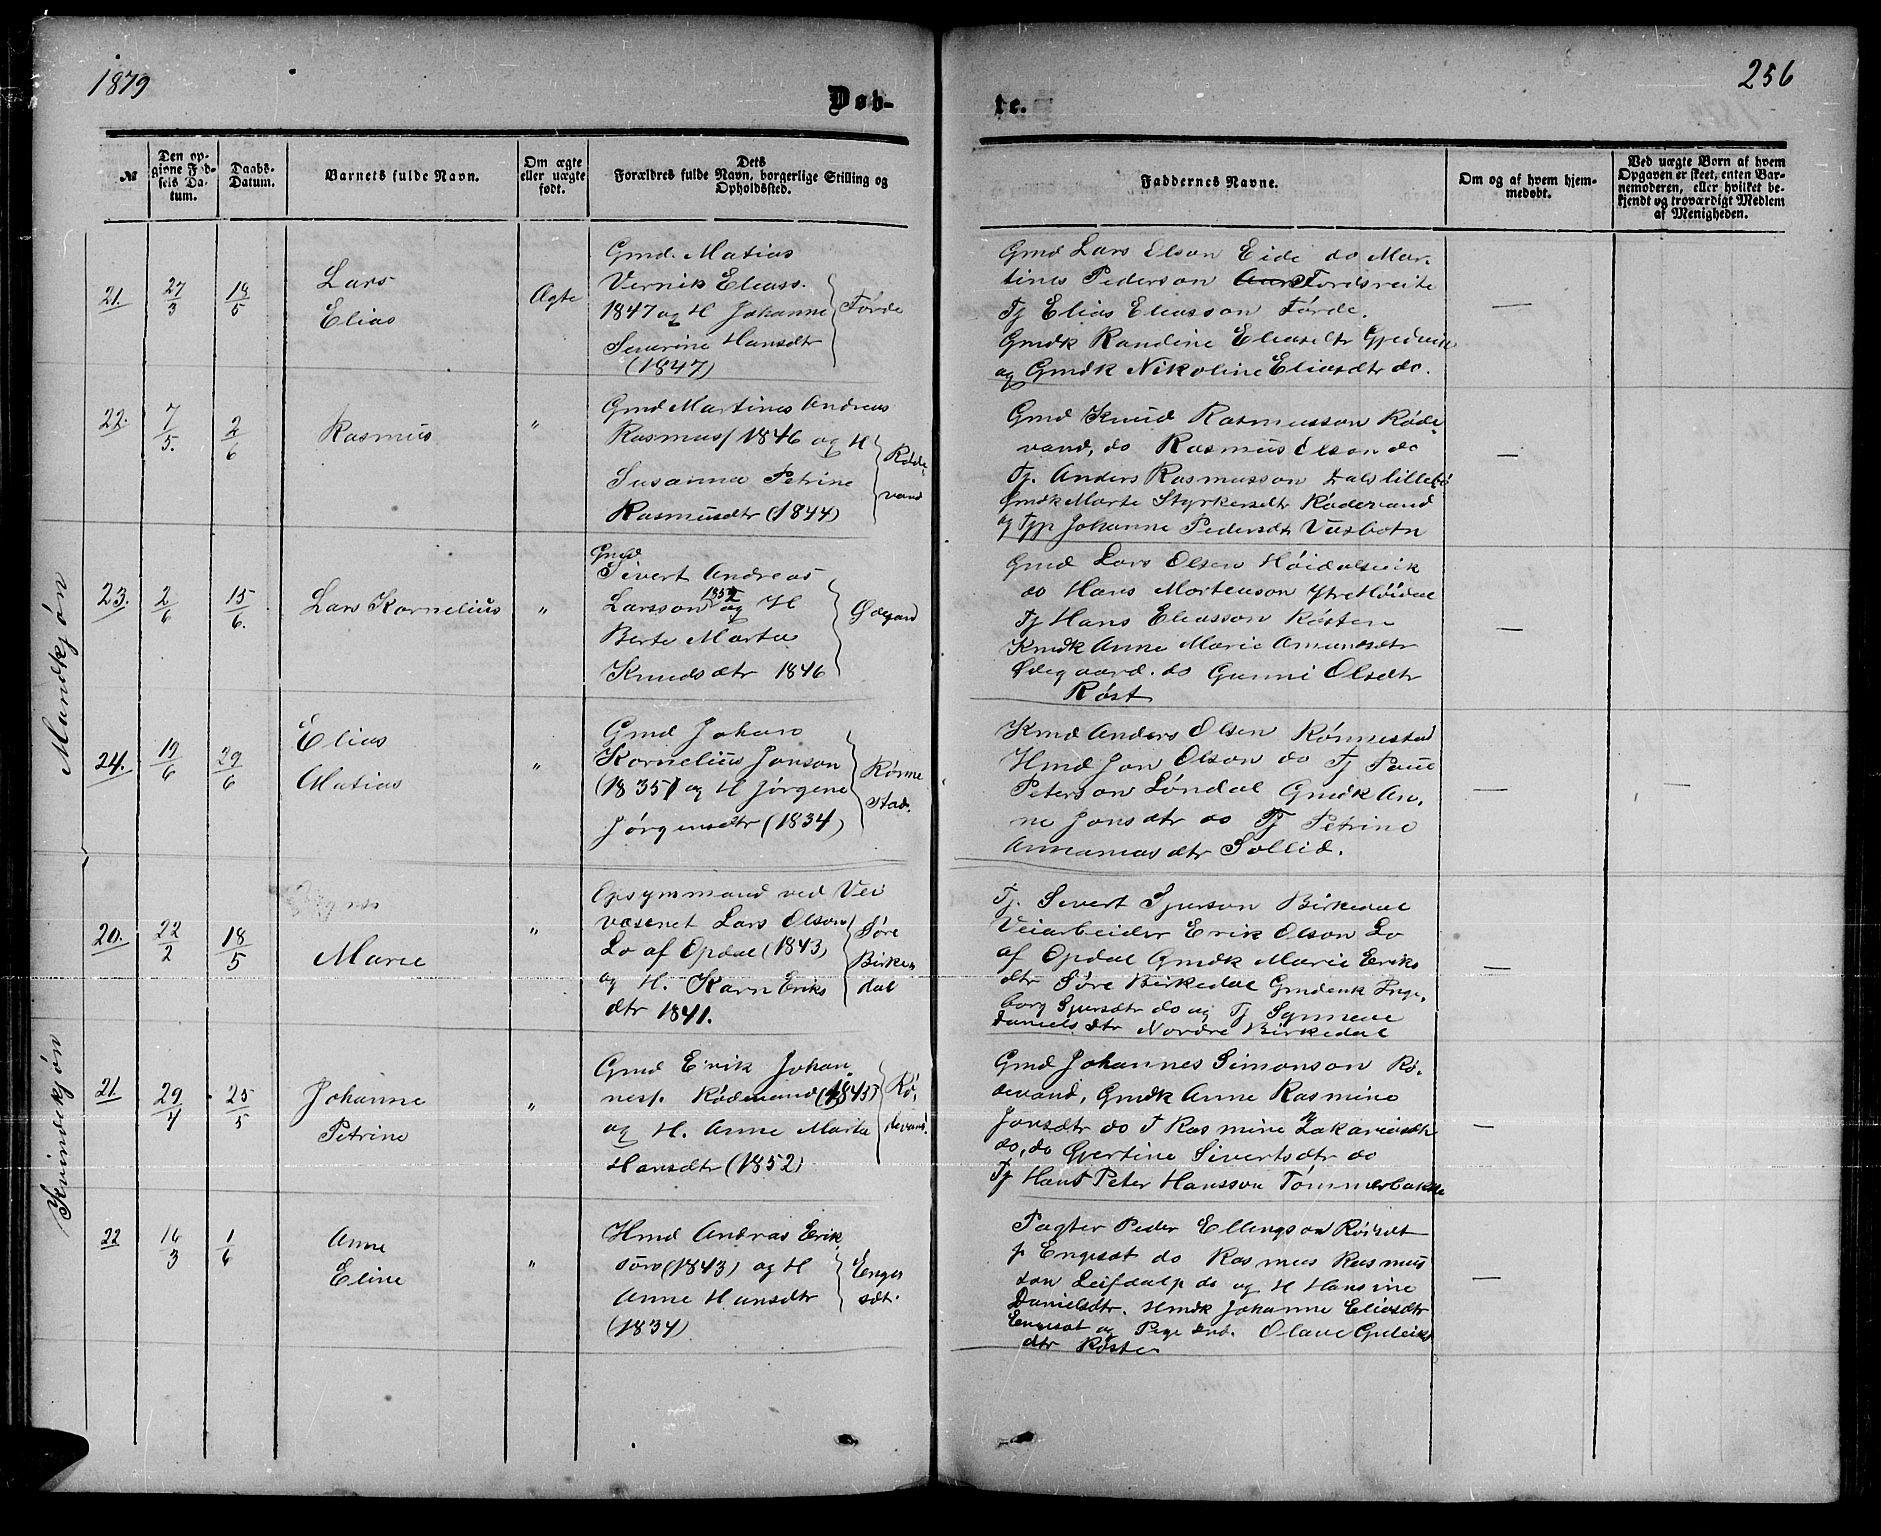 1879
256
Døb-
te.
№
Den op-
givne Fød-
sels Da-
tum.
Daabs-
Datum.
Barnets fulde Navn.
Om ægte
eller uægte
født.
Dets
Forældres fulde Navn, borgerlige Stilling og
Opholdssted.
Faddernes Navne.
Om og af hvem hjem-
medøbt.
Ved uægte Born af hvem
Opgaven er skeet, enten Bar-
nemoderen, eller hvilket be-
kjendt og troværdigt Medlem
af Menigheden.
Mandkjøn
21. 27/3 18/5
Lars
Elias
Ægte
Gmd. Matias
Vernik Eliass.
1847 og H Johanne
Severine Hansdtr
(1847)
Førde
Gmd Lars Elson Eide do Mar-
tines Pederson Førdsreite
Tj Elias Eliasson Førde.
Gmdk Randine Eliasdtr Gjedvik
og Gmdk Nikoline Eliasdtr do.
—
22. 7/5. 2/6
Rasmus
"
Gmd Martines Andreas
Rasmusf 1846 og H
Susanna Petrine
Rasmusdtr (1844)
Røde-
vand
Gmd Knud Rasmusson Røde-
vand, do Rasmus Olson do
Tj. Anders Rasmusson Dals lillebø
Gmdk Marte Styrkersdtr Rødevand
og Tjp Johanne Pedersdtr Vasbotn
—
23. 2/6 15/6.
Lars Kornelius
"
Gmd
Sivert Andreas
Larsson 1852 og H
Berte Marta
Knudsdtr 1846
Ødegard
Gmd Lars Olsen Høidalsvik
do Hans Mortenson Ytre Høidal
Tj Hans Eliasson Røsten
Kmdk Anne Marie Amundsdtr
Ødegaard. do Gunni Olsdtr
Røst
—
24. 19/6 29/6
Elias
Matias
"
Gmd Johan
Kornelius Jonson
(1835) og H Jørgene
Jørgensdtr (1834)
Rønne
stad.
Kmd Anders Olsen Rønnestad
Hmd Jon Olson do Tj Paul
Peterson Løndal Gmdk An-
ne Jonsdtr do Tj Petrine
Annaniasdtr Sollid.
—
—
Kvindekjøn
20. 22/2 18/5
Marie
"
Opsynmand ved Vei
væsenet Lars Olson
Lo af Opdal (1843)
og H. Karn Eriks
dtr 1841.
Søre
Birke-
dal
Tj. Sivert Sjurson Birkedal
Veiarbeider Erik Olson Lo
af Opdal Gmdk Marie Eriks
dtr Søre Birkedal Gmdenk Inge-
borg Sjursdtr do og Tj Synneve
Daniels dtr Nordre Birkedal
—
21. 29/4 25/5
Johanne
Petrine
"
Gmd Erik Johan-
nesf. Rødevand (1845)
og H. Anne Marta
Hansdtr (1852)
Rø-
devand.
Gmd Johannes Simonson Rø-
devand, Gmdk Anne Rasmine
Jonsdtr do T Rasmine Zakariasdtr
do, do Gjertine Sivertsdtr do
Tj Hans Peter Hansson Tømmerbakke
—
22 16/3 1/6
Anne
Eline
"
Hmd Andras Erik
søn (1843) og H
Anne Hansdtr
(1834)
Enge
sdt.
Pagter Peder Ellingson Røisdt
p Engesdt do Rasmus Rasmus
son Leifdalp do og H Hansine
Danielsdtr. Hmdk Johanne Eliasdtr
Engesdt og Pige Olave Gjeleiks
dtr Røste
—